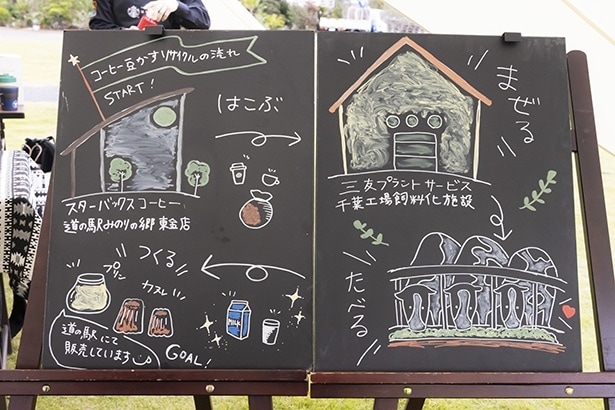 コーヒー豆かすリサイクルの流れ
START!
はこぶ
スターバックスコーヒー
道の駅みのりの郷 東金店
まぜる
三友プラントサービス
千葉工場飼料化施設
たべる
MILK
つくる
プリン
カヌレ
道の駅にて
販売しています
GOAL!